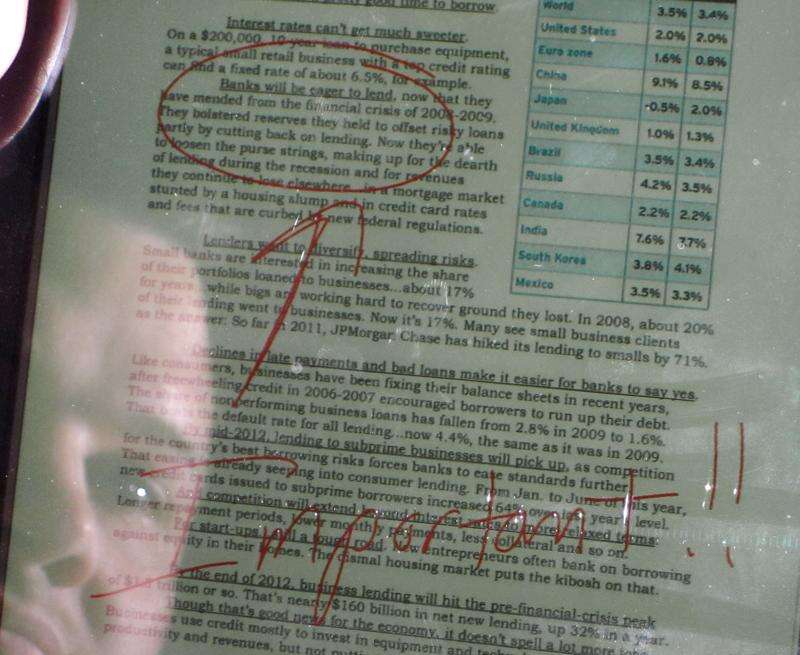 good time to borrow.
Interest rates can't get much sweeter.
On a $200,000, 10-year loan to purchase equipment,
a typical small retail business with a top credit rating
can find a fixed rate of about 6.5%, for example.
Banks will be eager to lend, now that they
have mended from the financial crisis of 2008-2009.
They bolstered reserves they held to offset risky loans
partly by cutting back on lending. Now they're able
to loosen the purse strings, making up for the dearth
of lending during the recession and for revenues
they continue to lose elsewhere...in a mortgage market
stunted by a housing slump and in credit card rates
and fees that are curbed by new federal regulations.
Lenders want to diversify, spreading risks.
Small banks are interested in increasing the share
of their portfolios loaned to businesses...about 17%
for years...while bigs are working hard to recover ground they lost. In 2008, about 20%
of their lending went to businesses. Now it's 17%. Many see small business clients
as the answer: So far in 2011, JPMorgan Chase has hiked its lending to smalls by 71%.
Declines in late payments and bad loans make it easier for banks to say yes.
Like consumers, businesses have been fixing their balance sheets in recent years,
after freewheeling credit in 2006-2007 encouraged borrowers to run up their debt.
The share of nonperforming business loans has fallen from 2.8% in 2009 to 1.6%.
That beats the default rate for all lending...now 4.4%, the same as it was in 2009.
By mid-2012, lending to subprime businesses will pick up, as competition
for the country's best borrowing risks forces banks to ease standards further.
That easing is already seeping into consumer lending. From Jan. to June of this year,
new credit cards issued to subprime borrowers increased 64% over last year's level.
And competition will extend beyond interest rates to more relaxed terms:
Longer repayment periods, lower monthly payments, less collateral and so on.
For start-ups, still a tough road. New entrepreneurs often bank on borrowing
against equity in their homes. The dismal housing market puts the kibosh on that.
By the end of 2012, business lending will hit the pre-financial-crisis peak
of trillion or so. That's nearly $160 billion in net new lending, up 32% in a year.
Though that's good news for the economy, it doesn't spell a lot more jobs.
Businesses use credit mostly to invest in equipment and
productivity and revenues, but not
World 3.5% 3.4%
United States 2.0% 2.0%
Euro zone 1.6% 0.8%
China 9.1% 8.5%
Japan -0.5% 2.0%
United Kingdom 1.0% 1.3%
Brazil 3.5% 3.4%
Russia 4.2% 3.5%
Canada 2.2% 2.2%
India 7.6% 7.7%
South Korea 3.8% 4.1%
Mexico 3.5% 3.3%
Important!!